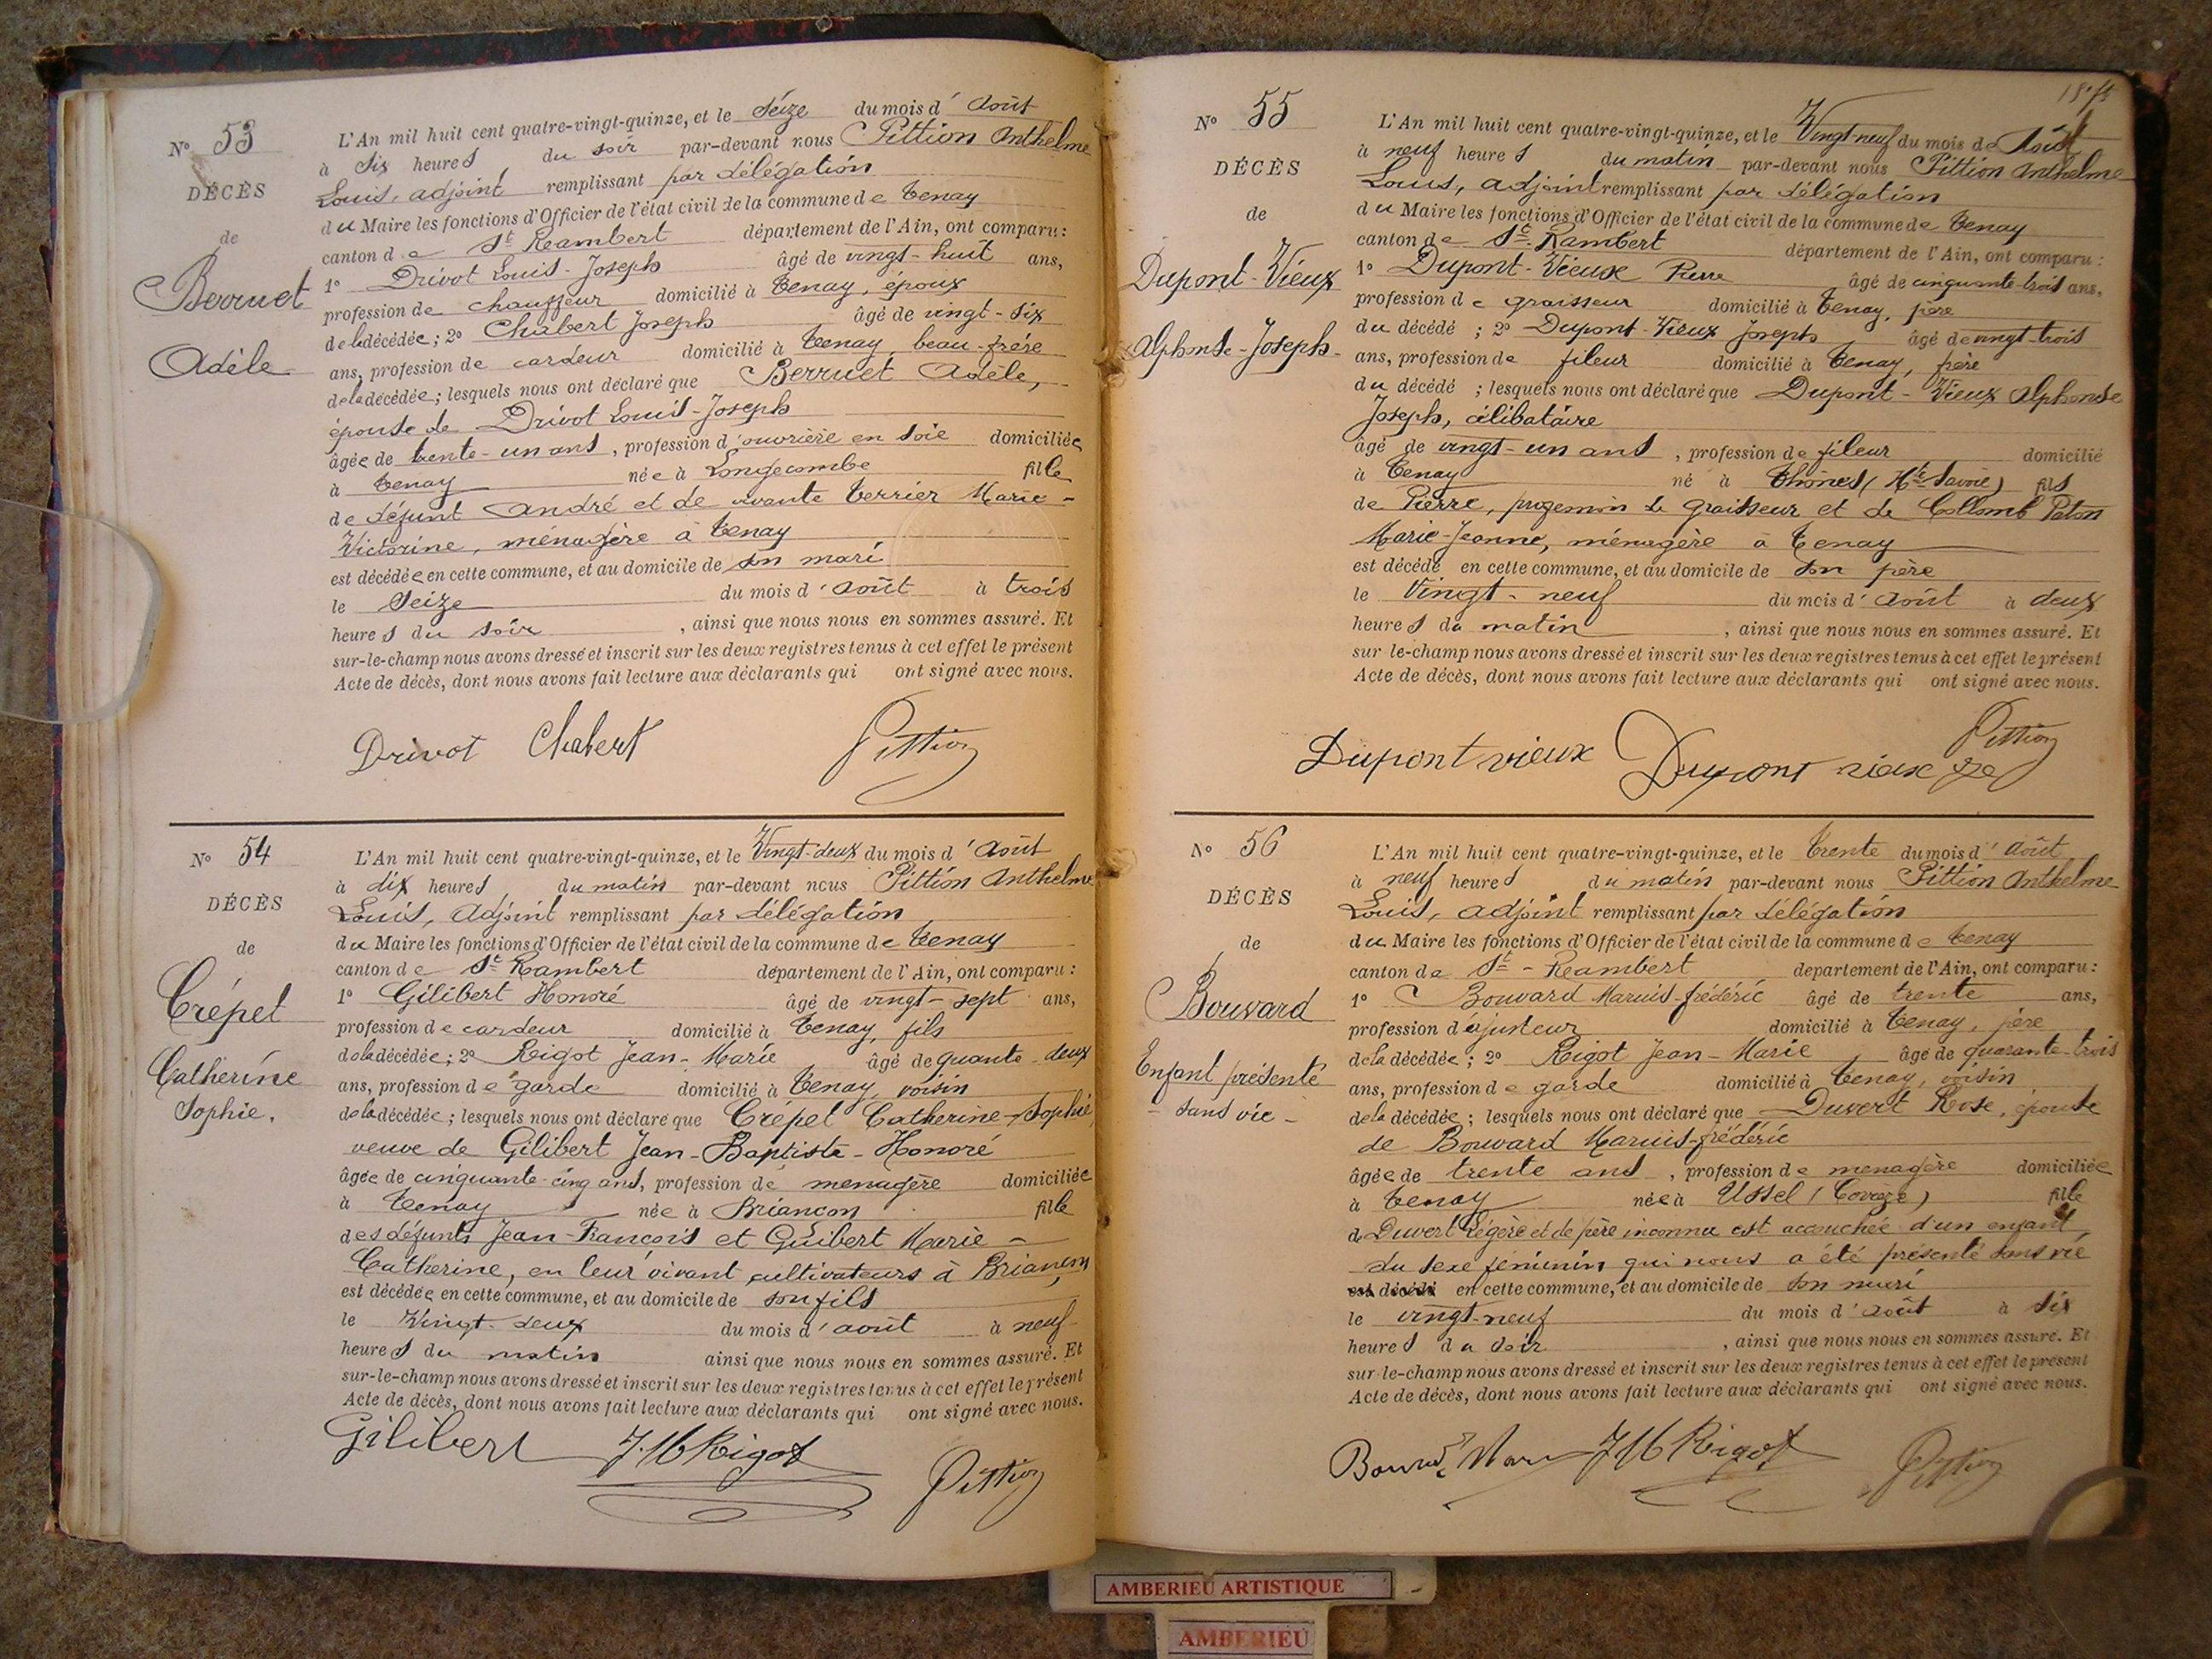 N° 53
DÉCÈS
de
Berruet
Adèle
L'An mil huit cent quatre-vingt-quinze, et le Seize du mois d'Août
à Six heures du soir par-devant nous Pittion Anthelme
Louis, adjoint remplissant par délégation
du Maire les fonctions d'Officier de l'état civil de la commune de Tenay
canton de St Rambert département de l'Ain, ont comparu :
1° Drivot Louis-Joseph âgé de vingt-huit ans,
profession de chauffeur domicilié à Tenay, époux
de la décédée ; 2° Chabert Joseph âgé de vingt-six
ans, profession de cardeur domicilié à Tenay beau-frère
de la décédée ; lesquels nous ont déclaré que Berruet Adèle,
épouse de Drivot Louis-Joseph
âgée de trente-un ans, profession d'ouvrière en soie domiciliée
à Tenay née à Longecombe fille
de défunt André et de vivante Terrier Marie-
Victorine, ménagère à Tenay
est décédée en cette commune, et au domicile de son mari
le Seize du mois d'Août à trois
heures du soir, ainsi que nous nous en sommes assuré. Et
sur-le-champ nous avons dressé et inscrit sur les deux registres tenus à cet effet le présent
Acte de décès, dont nous avons fait lecture aux déclarants qui ont signé avec nous.
Drivot Chabert Pittion
N° 54
DÉCÈS
de
Crépet
Catherine
Sophie.
L'An mil huit cent quatre-vingt-quinze, et le Vingt-deux du mois d'Août
à dix heures du matin par-devant nous Pittion Anthelme
Louis, Adjoint remplissant par délégation
du Maire les fonctions d'Officier de l'état civil de la commune de Tenay
canton de St Rambert département de l'Ain, ont comparu :
1° Gilibert Honoré âgé de vingt-sept ans,
profession de cardeur domicilié à Tenay, fils
de la décédée ; 2° Rigot Jean-Marie âgé de quante-deux
ans, profession de garde domicilié à Tenay, voisin
de la décédée ; lesquels nous ont déclaré que Crépet Catherine-Sophie
veuve de Gilibert Jean-Baptiste-Honoré
âgée de cinquante-cinq ans, profession de menagère domiciliée
à Tenay née à Briançon fille
des défunts Jean-François et Guibert Marie-
Catherine, en leur vivant cultivateurs à Briançon
est décédée en cette commune, et au domicile de son fils
le Vingt-deux du mois d'août à neuf
heures du matin ainsi que nous nous en sommes assuré. Et
sur-le-champ nous avons dressé et inscrit sur les deux registres tenus à cet effet le présent
Acte de décès, dont nous avons fait lecture aux déclarants qui ont signé avec nous.
Gilibert J M Rigot Pittion
N° 55
DÉCÈS
de
Dupont-Vieux
Alphonse-Joseph-
L'An mil huit cent quatre-vingt-quinze, et le Vingt-neuf du mois de Août
à neuf heures du matin par-devant nous Pittion Anthelme
Louis, adjoint remplissant par délégation
du Maire les fonctions d'Officier de l'état civil de la commune de Tenay
canton de St Rambert département de l'Ain, ont comparu :
1° Dupont-Vieux Pierre âgé de cinquante-trois ans,
profession de graisseur domicilié à Tenay, père
du décédé ; 2° Dupont-Vieux Joseph âgé de vingt-trois
ans, profession de fileur domicilié à Tenay, frère
du décédé ; lesquels nous ont déclaré que Dupont-Vieux Alphonse
Joseph, célibataire
âgé de vingt-un ans, profession de fileur domicilié
à Tenay né à Thônes (Hte Savoie) fils
de Pierre, profession de graisseur et de Collomb Paton
Marie-Jeanne, ménagère à Tenay
est décédé en cette commune, et au domicile de son père
le Vingt-neuf du mois d'Août à deux
heures du matin, ainsi que nous nous en sommes assuré. Et
sur-le-champ nous avons dressé et inscrit sur les deux registres tenus à cet effet le présent
Acte de décès, dont nous avons fait lecture aux déclarants qui ont signé avec nous.
Pittion
Dupont vieux Dupont vieux
N° 56
DÉCÈS
de
Bouvard
Enfant présenté
- sans vie -
L'An mil huit cent quatre-vingt-quinze, et le Trente du mois d'Août
à neuf heures du matin par-devant nous Pittion Anthelme
Louis, adjoint remplissant par délégation
du Maire les fonctions d'Officier de l'état civil de la commune de Tenay
canton de St-Rambert département de l'Ain, ont comparu :
1° Bouvard Marius-frédéric âgé de trente ans,
profession d'ajusteur domicilié à Tenay, père
de la décédée ; 2° Rigot Jean-Marie âgé de quarante-trois
ans, profession de garde domicilié à Tenay, voisin
de la décédée ; lesquels nous ont déclaré que Duvert Rose, épouse
de Bouvard Marius-frédéric
âgée de trente ans, profession de menagère domiciliée
à Tenay née à Ussel (Corrèze) fille
de Duvert Légère et de père inconnu est accouchée d'un enfant
du sexe féminin qui nous a été présenté sans vie
est décédé en cette commune, et au domicile de son mari
le vingt-neuf du mois d'août à six
heures du soir, ainsi que nous nous en sommes assuré. Et
sur-le-champ nous avons dressé et inscrit sur les deux registres tenus à cet effet le présent
Acte de décès, dont nous avons fait lecture aux déclarants qui ont signé avec nous.
J M Rigot Pittion
AMBERIEU ARTISTIQUE
AMBERIEU